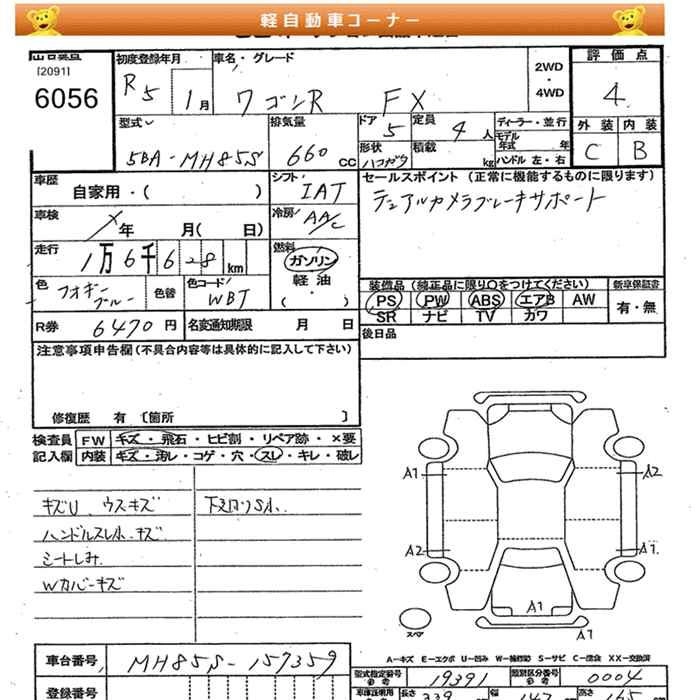 軽自動車コーナー
[2091]
6056
初度登録年月
R5 1月
車名・グレード
ワゴンR FX
2WD
・
4WD
評価点
4
型式
5BA-MH85S
排気量
660 CC
ドア
5
形状
定員
4人
積載
kg
ディーラー・並行
モデル
年式 年
ハンドル 左・右
外装 内装
C B
車歴
自家用・( )
シフト
IAT
セールスポイント (正常に機能するものに限ります)
デュアルカメラブレーキサポート
車検
年 月( 日)
冷房
AAC
走行
1万6千628km
燃料
ガソリン
軽油
( ・ )
色
フォギーブルー
色替
色コード
WBT
装備品 (純正品に限り○をつけてください)
新車保証書
PS PW ABS エアB AW
SR ナビ TV カワ
有・無
R券 6470円
名変通知期限 月 日
後日品
注意事項申告欄(不具合内容等は具体的に記入して下さい)
修復歴 有 〔箇所 〕
検査員 FW キズ・飛石・ヒビ割・リペア跡・×要
記入欄 内装 キズ・汚レ・コゲ・穴・スレ・キレ・破レ
キズU ウスキズ
ハンドルスレ小、キズ
シートしみ
Wカバーキズ
A1
A2
A2
A1
A1
スペア
A-キズ E-エクボ U-凹み W-補修跡 S-サビ C-腐食 XX-交換済
車台番号 MH85S-157359
型式指定番号 19391
類別区分番号 0004
登録番号
長さ 339
幅 147
高さ 165